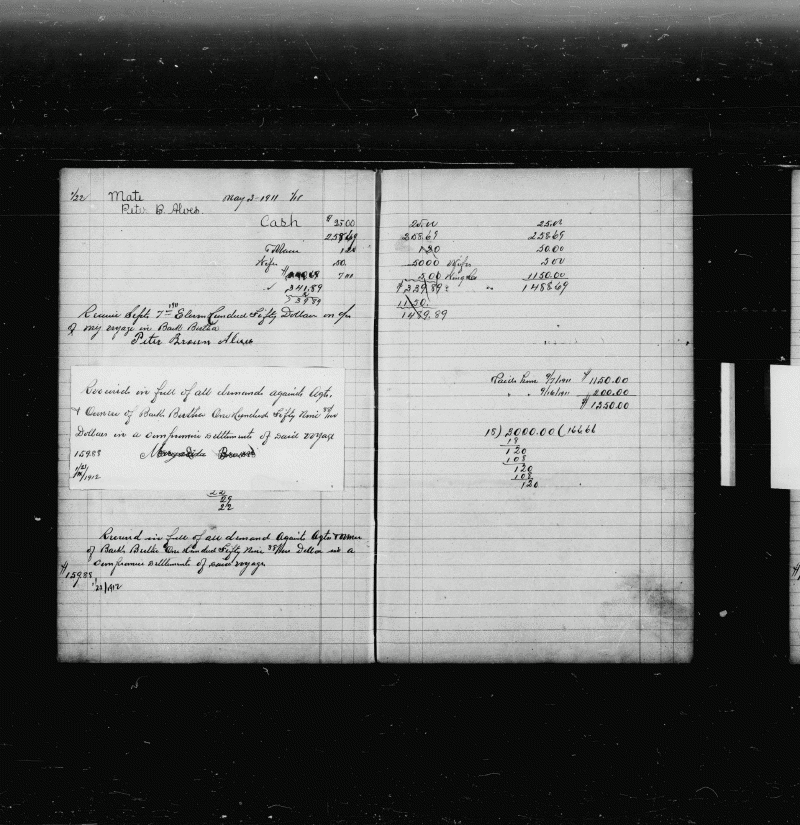 1/22 Mate May 2-1911 1/18
Peter B. Alves.
Cash $ 25.00
258.69
1.20
Wife 50.
7 00
" 341.89
$ 339.89
Receiv Sept 7th 1911 Eleven Hundred Fifty Dollars on a/c
of my voyage in Bark Bertha
Peter Brown Alves
Received in full of all demands against Agts.
& Owners of Bark Bertha One Hundred Fifty Nine 88/100
Dollars in a compromise settlements of said voyage
159.88
1/23/1912
29
22
Received in full of all demand Against Agts & Owners
of Bark Bertha One Hundred Fifty Nine 88/100 Dollars in a
compromise settlements of said voyage
$159.88
1/23/1912
25.00 25.00
258.69 258.69
1.20 50.00
50.00 Wife 5.00
5.00 1150.00
$ 339.89 " 1488.69
1150.
1489.89
Paid him 9/7/1911 $ 1150.00
" " 9/16/1911 200.00
$ 1350.00
18) 3000.00 ( 166.66
18
120
108
120
108
120